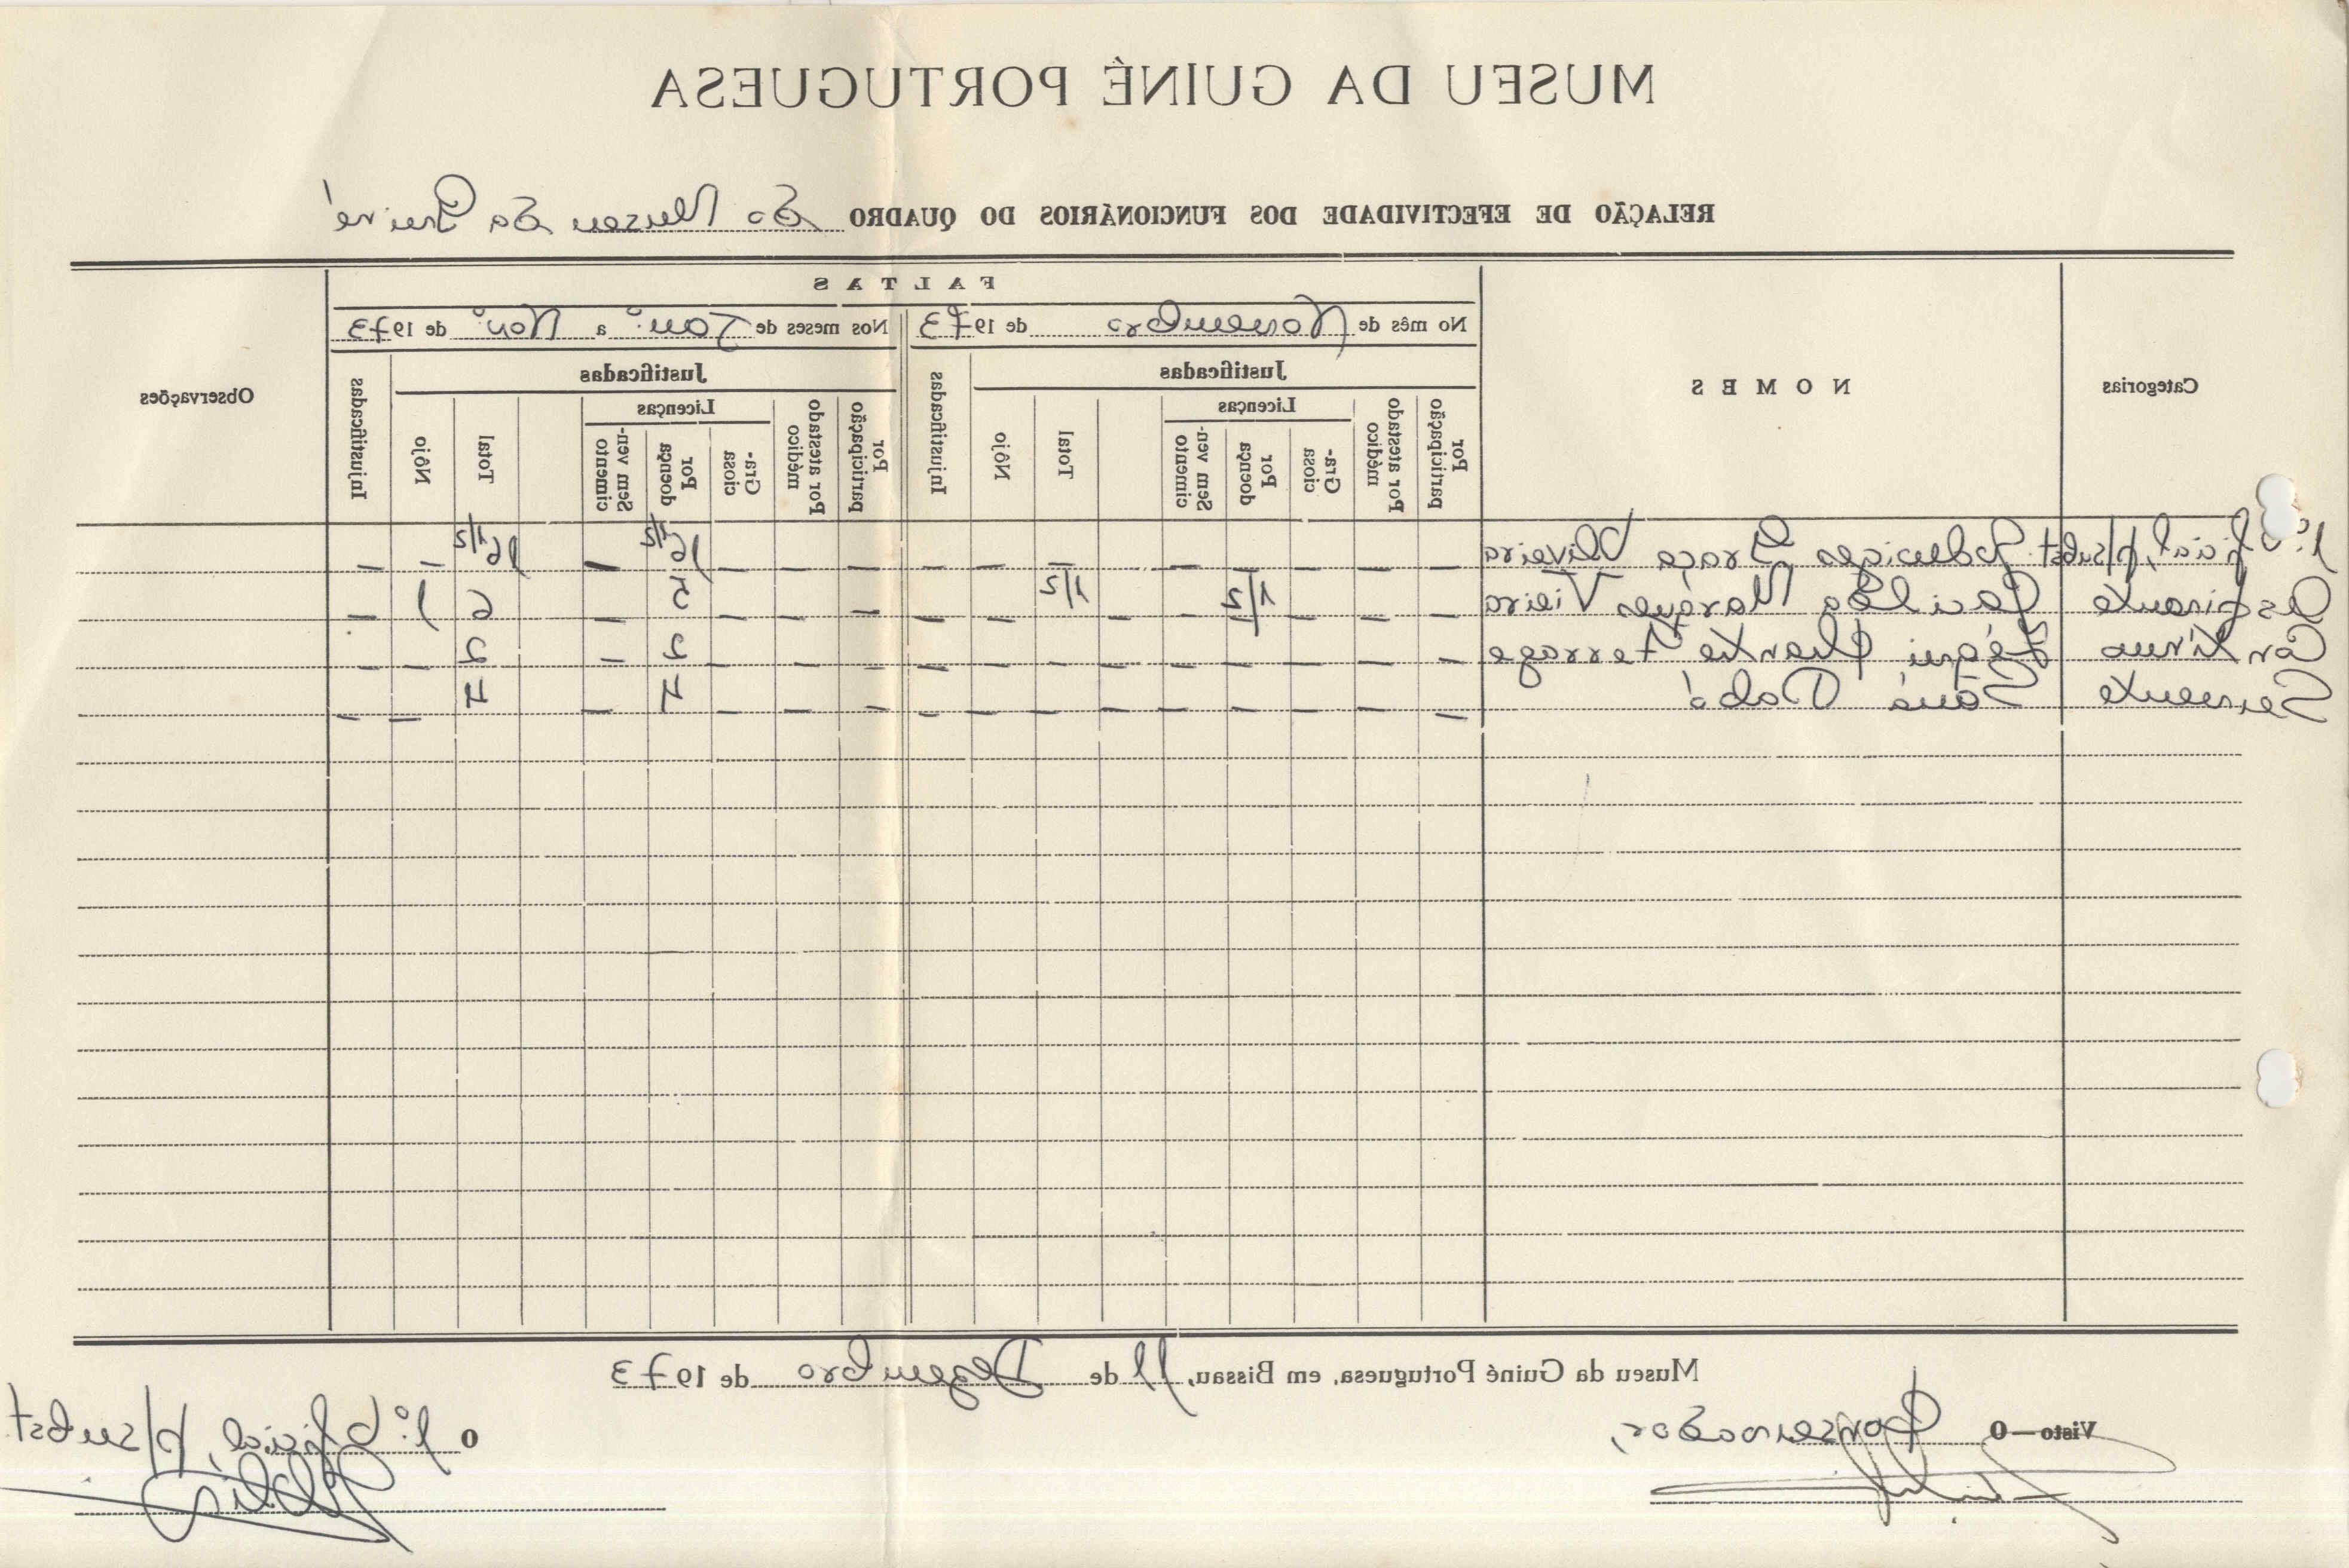 MUSEU DA GUINÉ PORTUGUESA
RELAÇÃO DE EFECTIVIDADE DOS FUNCIONÁRIOS DO QUADRO do Museu da Guiné
Categorias
NOMES
FALTAS
No mês de Novembro de 1973
Nos meses de Jan.º a Nov.º de 1973
Observações
Justificadas
Justificadas
Por participação
Por atestado médico
Licenças
Gra- ciosa
Por doença
Sem ven- cimento
Total
Nôjo
Injustificadas
Por participação
Por atestado médico
Licenças
Gra- ciosa
Por doença
Sem ven- cimento
Total
Nôjo
Injustificadas
1.º Oficial, p/subst. Graça Oliveira – – – – – – – – – – – 16 1/2 – 16 1/2 – –
Aspirante Marques Vieira – – – 1/2 – 1/2 – – – – – 5 – 6 1 –
Duarte Ferrage – – – – – – – – – – – 2 – 2 – –
Servente – – – – – – – – – – – 4 – 4 – –
Museu da Guiné Portuguesa, em Bissau, 11 de Dezembro de 1973
Visto—O Conservador,
O 1.º Oficial, p/subst.